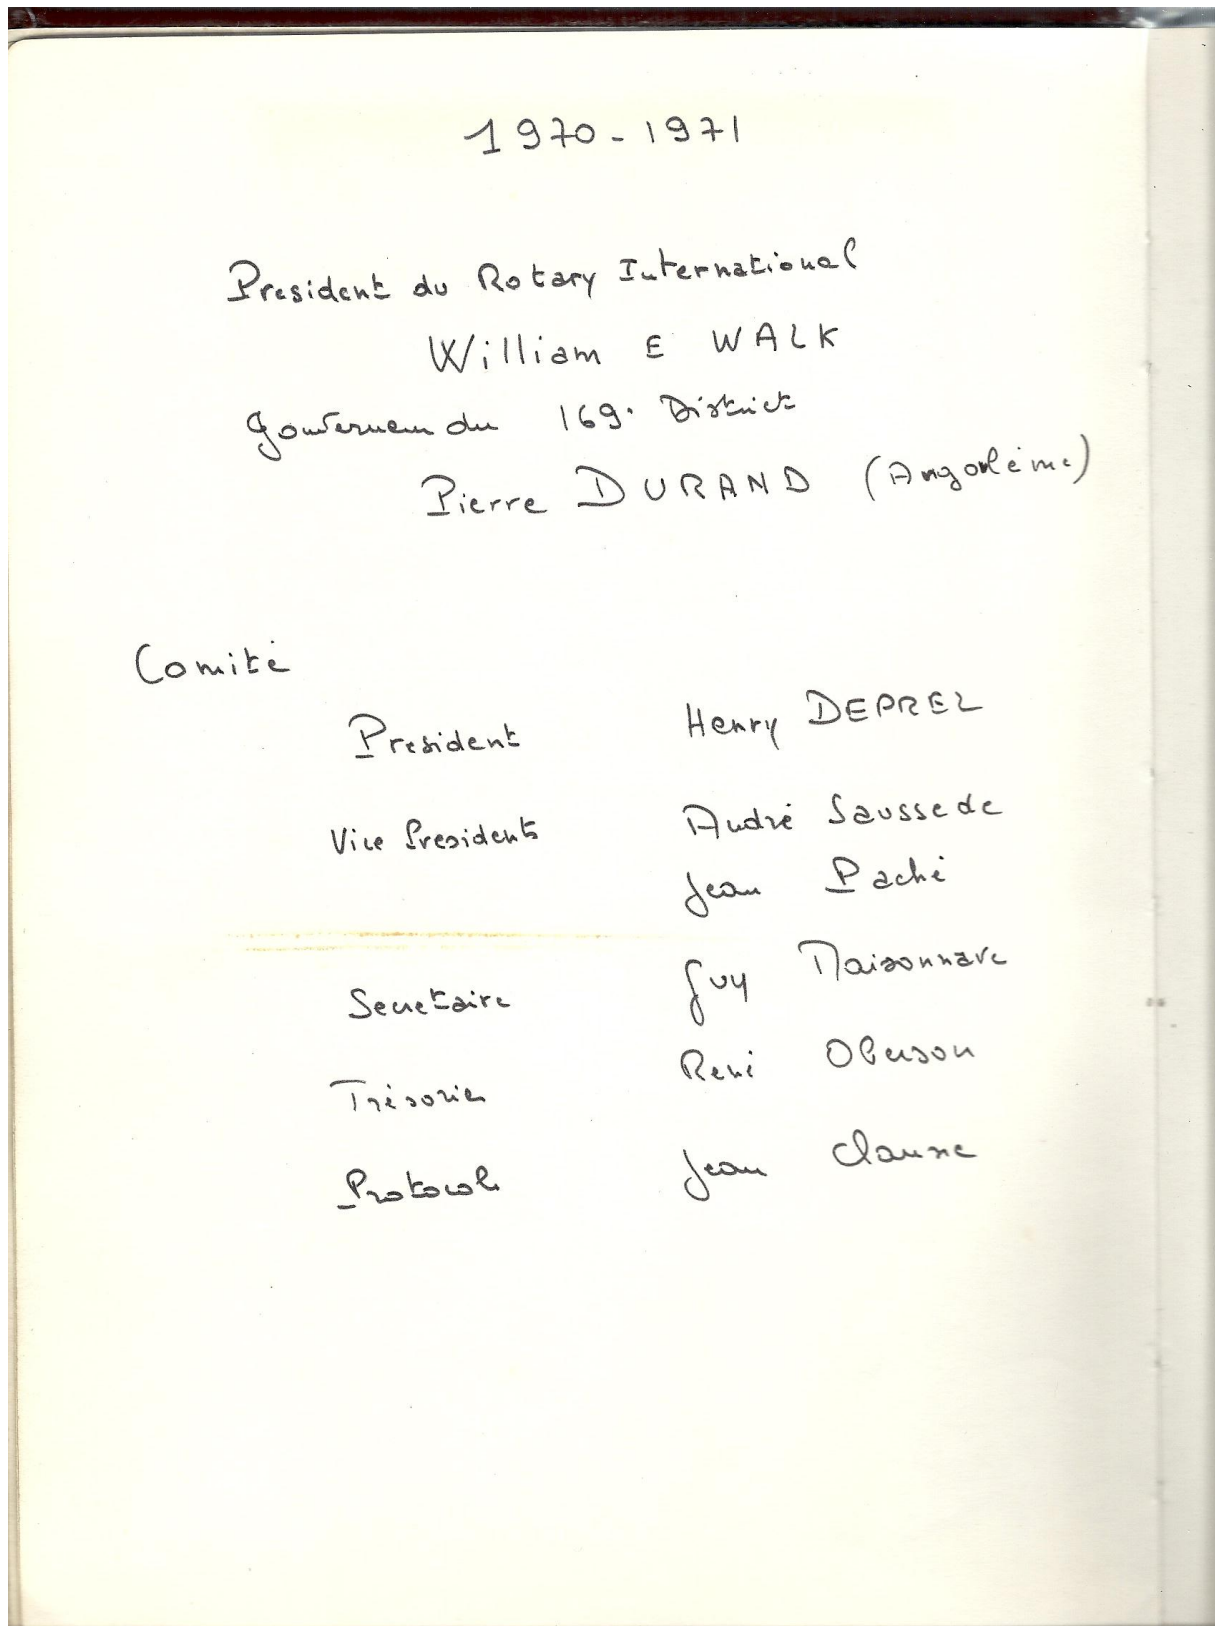 1970 - 1971
President du Rotary International
William E WALK
Gouverneur du 169. District
Pierre DURAND (Angoulême)
Comité
President Henry DEPREZ
Vice Presidents André Saussede
Jean Paché
Secretaire Guy Maisonnave
Trésorier René Oberson
Protocole Jean Clause